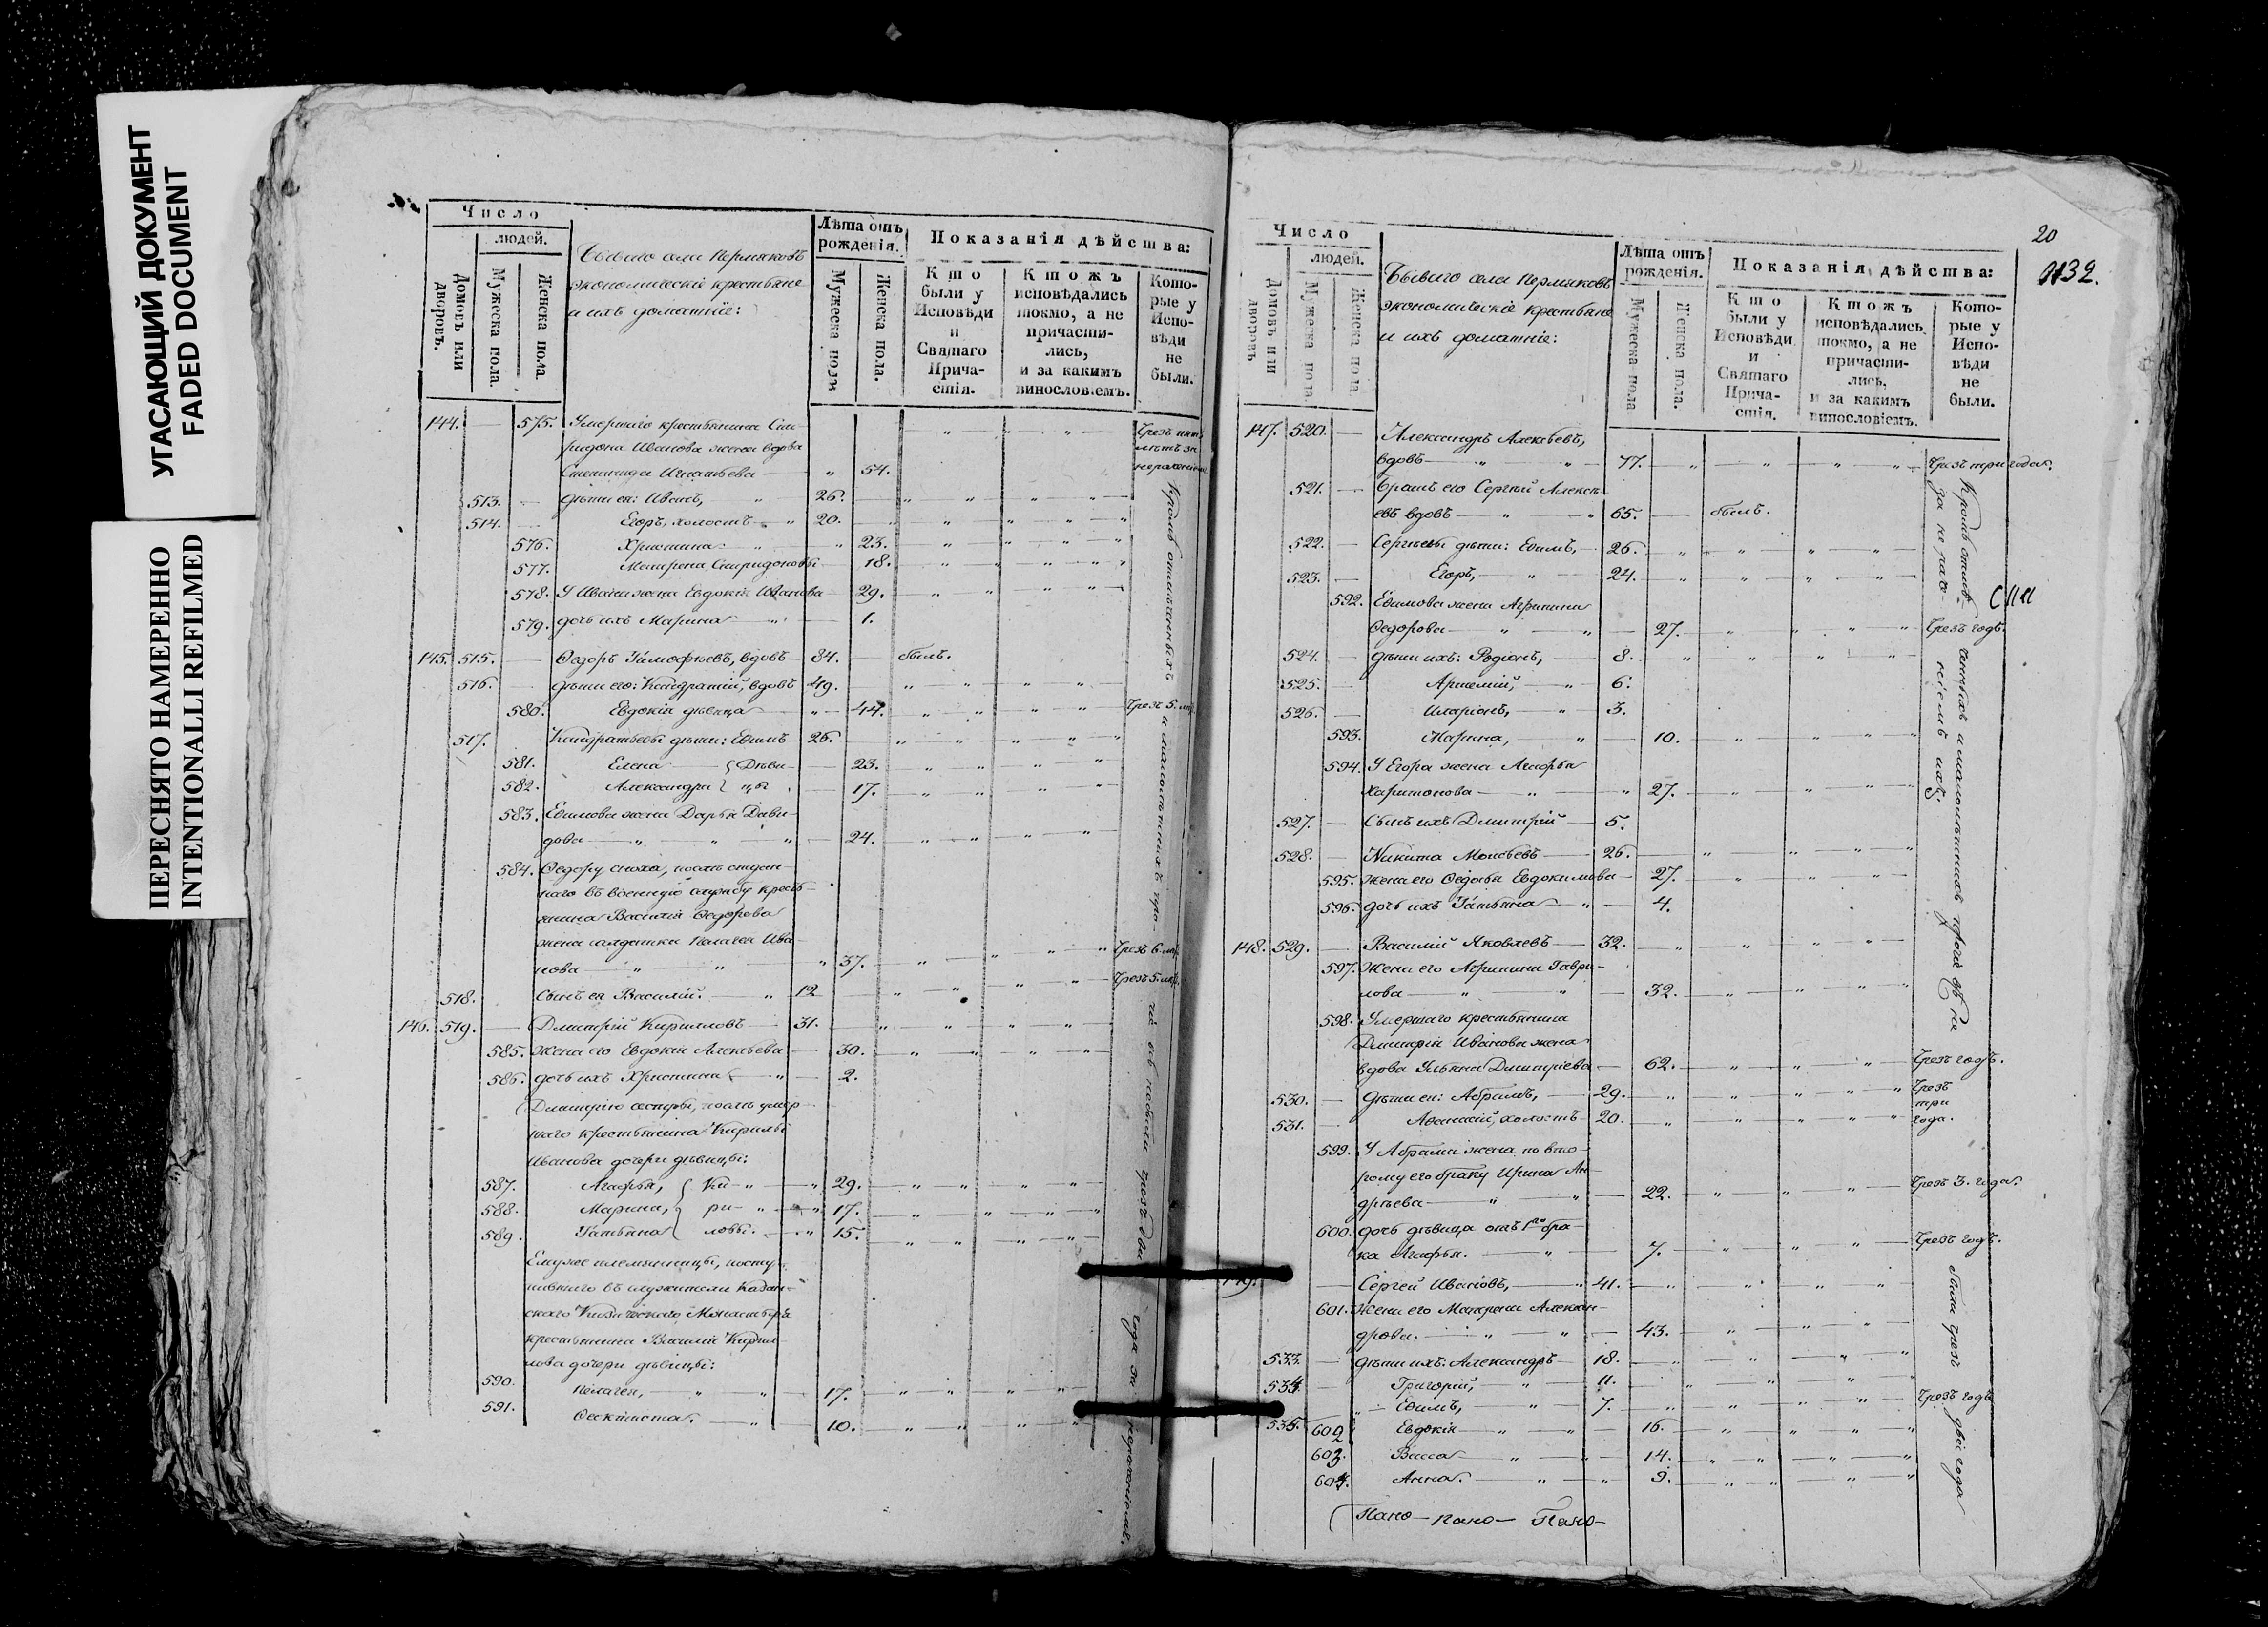 УГАСАЮЩИЙ ДОКУМЕНТ
FADED DOCUMENT
ПЕРЕСНЯТО НАМЕРЕННО
INTENTIONALLI REFILMED
Число
людей.
Домовъ или дворовъ.
Мужеска пола.
Женска пола.
Бывшаго села Пермяковъ
экономическіе крестьяне
и ихъ домашніе:
Лѣта отъ рожденія.
Мужеска пола
Женска пола.
Показанія дѣйства:
Кто были у Исповѣди и Святаго Прича-стія.
Ктожъ исповѣдались токмо, а не причасти-лись, и за какимъ винословіемъ.
Кото-рые у Испо-вѣди не были.
144. — 575. Умершаго крестьянина Спи-
ридона Иванова жена вдова
Степанида Игнатьева — 54.
513. — дѣти ея: Иванъ, 26.
514. — Егоръ, холостъ 20.
576. Христина 23.
577. Матрена Спиридоновы 18.
578. У Ивана жена Евдокія Иванова 29.
579. дочь ихъ Марина 1.
145. 515. — Ѳедоръ Тимофѣевъ, вдовъ 84. былъ.
516. — дѣти его: Кондратій, вдовъ 49.
580. Евдокія дѣвица 44. Чрезъ 5. лѣт.
517. Кондратьевы дѣти: Ефимъ 26.
581. Елена } Дѣви- 23.
582. Александра } цы 17.
583. Ефимова жена Дарья Дави-
дова 24.
584. Ѳедору сноха, послѣ отдан-
наго въ военную службу кресть-
янина Василія Ѳедорова
жена солдатка Пелагея Ива-
нова 37. Чрезъ 6. лѣт.
518. Сынъ ея Василій. 12 Чрезъ 5. лѣт.
146. 519. — Дмитрій Кириловъ 31.
585. жена его Евдокія Алексѣева 30.
586. дочь ихъ Христина 2.
Дмитрію сестры, послѣ умер-
шаго крестьянина Кирилы
Иванова дочери дѣвицы:
587. Агафья, { Ки- 29.
588. Марина, ри- 17.
589. Татьяна { ловы. 15.
Ему же племянницы, посту-
пившаго въ служители Казан-
скаго Кизическаго Монастыря
крестьянина Василія Кирил-
лова дочери дѣвицы:
590. Пелагея, 17.
591. Ѳеоктиста. 10.
20
1132.
Число
людей.
Домовъ или дворовъ
Мужеска пола
Женска пола
Бывшаго села Пермяковъ
экономическіе крестьяне
и ихъ домашніе:
Лѣта отъ рожденія.
Мужеска пола
Женска пола.
Показанія дѣйства:
Кто были у Исповѣди и Святаго Прича-стія.
Ктожъ исповѣдались токмо, а не причасти-лись, и за какимъ винословіемъ.
Кото-рые у Испо-вѣди не были.
147. 520. — Александръ Алексѣевъ,
вдовъ 77. Чрезъ три года.
521. — братъ его Сергѣй Алексѣ-
евъ вдовъ 65. былъ.
522. — Сергѣевы дѣти: Ефимъ, 26.
523. — Егоръ, 24.
592. Ефимова жена Агрипина
Ѳедорова 27. Чрезъ годъ.
524. — дѣти ихъ: Родіонъ, 8.
525. — Артемій, 6.
526. — Иларіонъ, 3.
593. Марина, 10.
594. У Егора жена Агафья
Харитонова 27.
527. — Сынъ ихъ Дмитрій 5.
528. — Никита Моисѣевъ 26.
595. жена его Ѳедосья Евдокимова 27.
596. дочь ихъ Татьяна 4.
148. 529. — Василій Яковлевъ 32.
597. Жена его Агрипина Гаври-
лова 32.
598. Умершаго крестьянина
Дмитрія Иванова жена
вдова Ульяна Дмитріева 62. Чрезъ годъ.
530. — дѣти ея: Абрамъ, 29. Чрезъ
три
531. — Аѳанасій, холостъ 20. года.
599. У Абрама жена по вто-
рому его браку Ирина Ан-
дрѣева 22. Чрезъ 3. года.
600. дочь дѣвица отъ 1го бра-
ка Агафья. 7. Чрезъ годъ.
149. — Сергей Ивановъ, 41.
601. Жена его Матрена Алексан-
дрова. 43.
533. — дѣти ихъ: Александръ 18.
534. — Григорій, 11.
Ефимъ, 7. Чрезъ годъ
535. 602 Евдокія 16.
603. Васса 14.
604. Анна. 9.